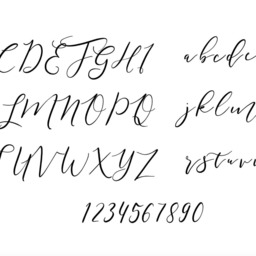 CDEFGHI abcde
LMNOPQ jklm
TUVWXYZ rstuv
1234567890